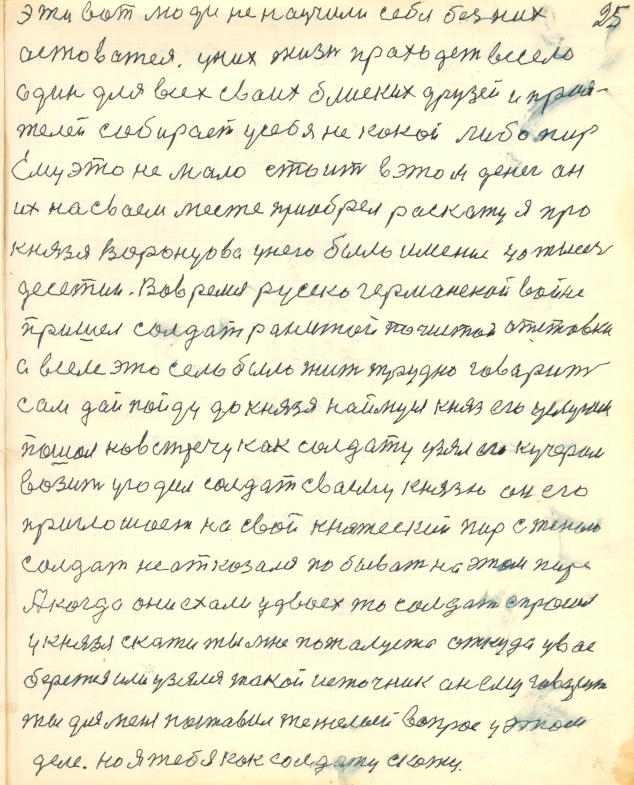 25
эти вот люди не научили себя без них
астоватся. у них жизн праходет весело
один для всех сваих блиских друзей и прия-
телей собирает у себя не какой либо пир
Ему это не мало стоит в этом денег он
их на сваем месте приобрел раскажу я про
князя Воронцова у него было имение 40 тысеч
десетин. Вовремя русско германской войне
пришол солдат ранитой по чистой
а в селе это село было жит трудно говарит
сам дай пойду до князя наймуся княз его
пошол новстречу как солдату узял его кучером
возит угодил солдат сваему князю он его
приглошает на свой княжеский пир с женою
солдат не атказаля побыват на этом пире
А когда они ехали удвоех то солдат спросил
у князя скажи ты мне пожалуста откуда у вас
береться или узялся такой источник он ему говарит
ты для меня поставил тежолый вопрос у этом
деле. но я тебя как солдату скажу.